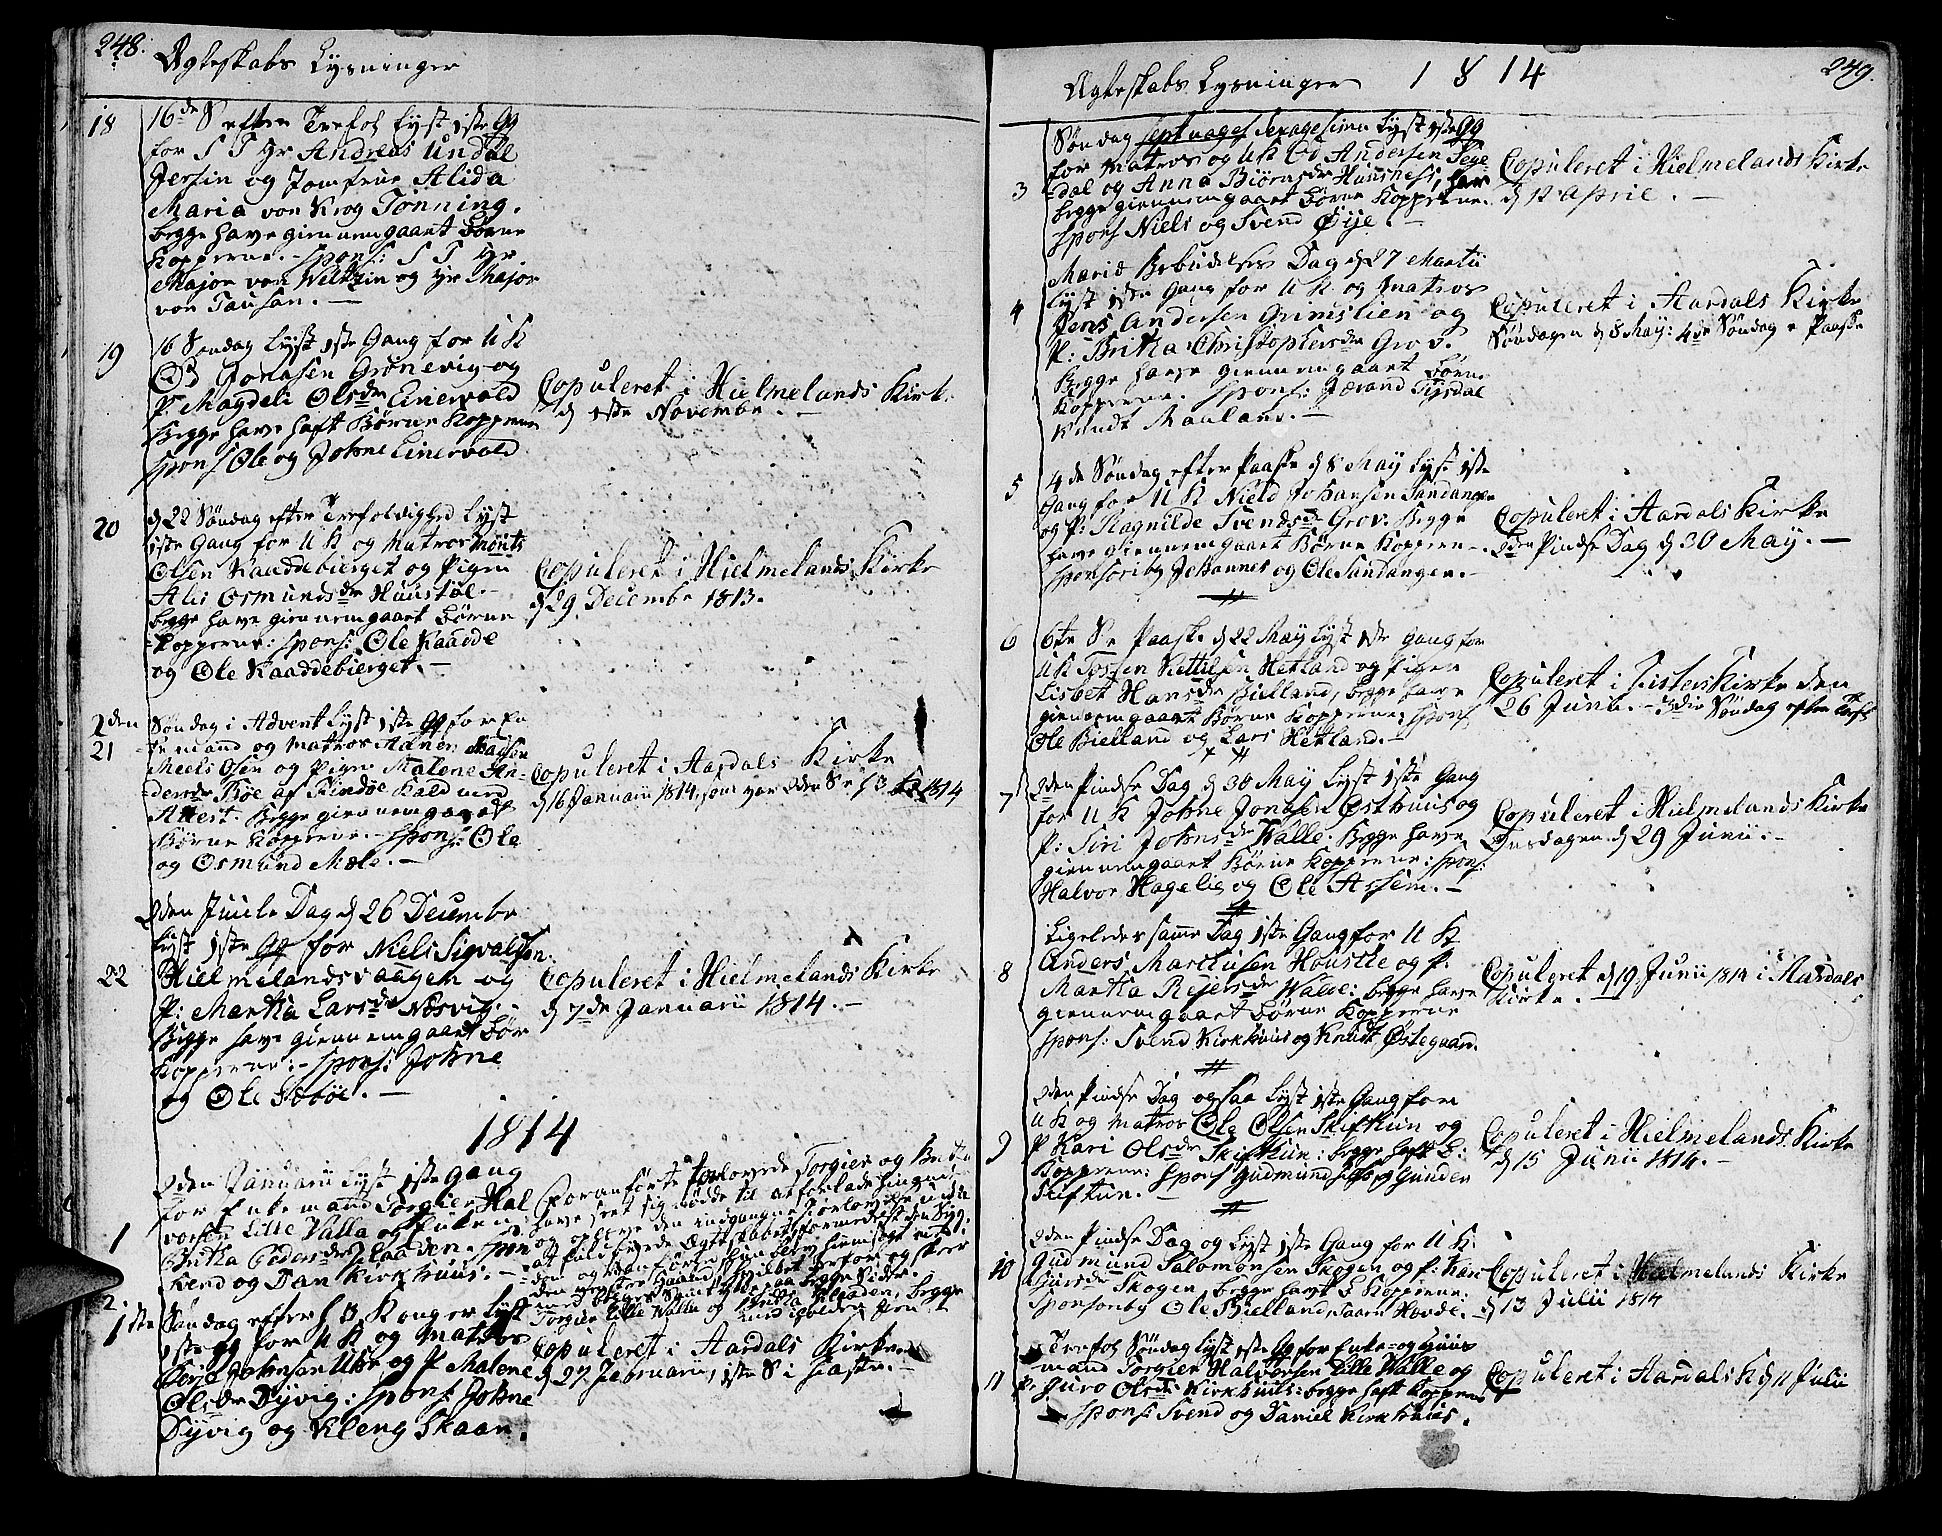 248.
Ægteskabs Lysninger
18
16de S efter Trefol Lyst 1ste Gg
for S T Hr Andreas Undal
Jersin og Jomfrue Alida
Maria von Krog Tønning.
begge have giennemgaaet Børne
Kopperne. - spons: S T Hr
Major von Weltzin og Hr Major
von Tausan. -
19
16 Søndag Lyst 1ste Gang for U K
Od Jonasen Grønevig og
P. Magdeli Olsdr Einervold
Begge have haft Børne Kopperne
spons Ole og Johne Einervold
Copuleret i Hielmelands Kirk.
d 1ste Novembr. -
20
d 22 Søndag efter Trefoldighed Lyst
1ste Gang for U K og Matros Monts
Olsen Kaaddebierget og Pigen
Alis Osmundsdr Huustøl. -
begge have giennemgaaet Børne
Kopperne: spons: Ole Kaadde
og Ole Kaaddebierget. -
Copuleret i Hielmelands Kirke
d 29 Decembr 1813.
2den
21
Søndag i Advent Lyst 1ste Gg for En
kemand og Matros
Meels Osen og Pigen Malene An-
dersdr Bøe af Findøe Kald med
Attest. Begge giennemgaaet
Børne Kopperne. - spons: Ole
og Osmund Mæle. -
Copuleret i Aardals Kirke
d 16 Januarii 1814, som var 2den S e H 3 K 1814
22
2den Juule Dag d 26 Decembr
Lyst 1ste Gg for Niels Sigvaldsen
Hielmelandsvaagen og
P: Martha Larsdr Næsvig. -
Begge have giennemgaaet Bør
Kopperne. - spons: Johne
og Ole Sobøe. -
Copuleret i Hielmelands Kirke
d 7de Januarii 1814. -
1814
1
2den Januarii Lyst 1ste gang
for Enkemand Torgier Hal
vorsen Lille Valla og Enken
Britha Pedersdr Fladen. spon
Svend og Dan Kirkhuus. -
Foranførte Forlovede Torgier og Britha
have seet sig nødde til at forlade hinanden
og ophæve den indgangne Forlovelse
2.
1ste
Søndag efter H 3 Konger Lyst
1ste Gg for U K og Matros
Børge Johnsen Uhr og P Malene
Olsdr Dyvig: spons: Johne
Dyvig og Kleng Skaar.
Copuleret i Aardals Kirke
d 27 Februarii, 1ste S i Faste. -
Ægteskabs Lysninger 1814
249.
3
Søndag Septuages Sexagesima Lyst 1ste Gg
for Matros og U K Od Andersen Tege
dal og Anna Biørnsdr Huusnes, har
begge giennemgaaet Børne Kopperne.
spons Niels og Svend Øye. -
Copuleret i Hielmelands Kirke
d 12 Aprie. -
4
Mariæ Bebudelses Dag d 27 Martii
Lyst 1ste Gang for U K og Matros
Jens Andersen Grimslien og
P: Britha Christophersdr Grov.
Begge have giennemgaaet Børne
Kopperne. spons: Jærand Tysdal
Knudt Mauland. -
Copuleret i Aardals Kirke
Søndagen d 8 May: 4de Søndag e Paaske
5
4de Søndag efter Paaske d 8 May Lyst 1ste
Gang for U K Nield Johansen Sandanger
og P: Ragnilde Svendsdr Grov. Begge
have giennemgaaet Børne Kopperne. -
sponsoribg Johannes og Ole Sandanger. -
Copuleret i Aardals Kirke
2den Pindse Dag d 30 May. -
6
6te S e Paaske d 22 May Lyst 1ste gang for
U K Tosten Kittilsen Hetland og Pigen
Lisbet Hansdr Bielland, begge have
giennemgaaet Børne Kopperne: spons:
Ole Bielland og Lars Hetland. -
Copuleret i Fisters Kirke den
26 Junii. - 3die Søndag efter Trefs
7
2den Pindse Dag d 30 May Lyst 1ste Gang
for U K Johne Jonasen Østhuus og
P: Siri Johnsdr Walle. Begge have
giennemgaaet Børne Kopperne: spons:
Halvor Hagelie og Ole Assem. -
Copuleret i Hielmelands Kirke
Onsdagen d 29 Junii. -
8
Ligeledes samme Dag 1ste Gang for U K
Anders Marthisen Houstle og P:
Martha Reiersdr Walde: begge have
giennemgaaet Børne Kopperne
spons: Svend Kirkhuus og Knudt Østegaard.
Copuleret d 19 Junii 1814 i Aardals
Kirke. -
9
2den Pindse Dag ogsaa Lyst 1ste Gang for
U K og Matros Ole Olsen Skiftun og
P Kari Olsdr Skiftun: begge haft B:
Kopperne: spons Gudmund og Gunden
Skiftun.
Copuleret i Hielmelands Kirke
d 15 Junii 1814. -
10
2den Pindse Dag og Lyst 1ste Gang for U K:
Gudmund Salomonsen Skogen og P: Kari
Giørsdr Skogen begge havt B Kopperne:
Sponsoribg Ole Bielland, Taaren Hovde.
Copuleret i Hielmelands Kirke
d 13 Julii 1814
11
Trefol Søndag Lyst 1ste Gg for Enke og Huus
mand Torgier Halvorsen Lille Walle og
P: Guro Olsdr Kirkhuus: begge haft Kopperne
spons: Svend og Daniel Kirkhuus.
Copuleret i Aardals K d 11 Julii